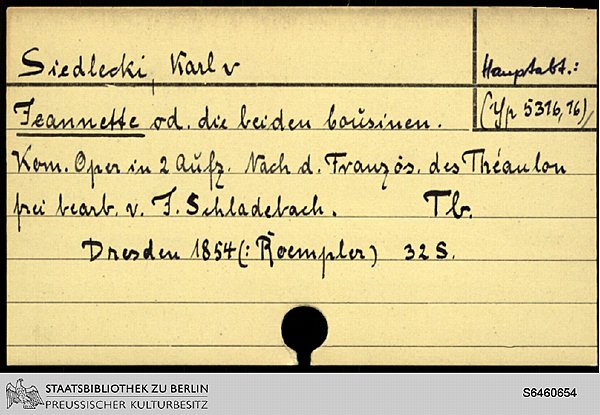 Siedlecki, Karl v
Hauptabt.:
(Yp 5316,16)
Jeannette od. die beiden Cousinen.
Kom. Oper in 2 Aufz. Nach d. Französ. des Théaulon
frei bearb. v. J. Schladebach. Tb.
Dresden 1854 (: Roempler) 32 S.
STAATSBIBLIOTHEK ZU BERLIN
PREUSSISCHER KULTURBESITZ
S6460654